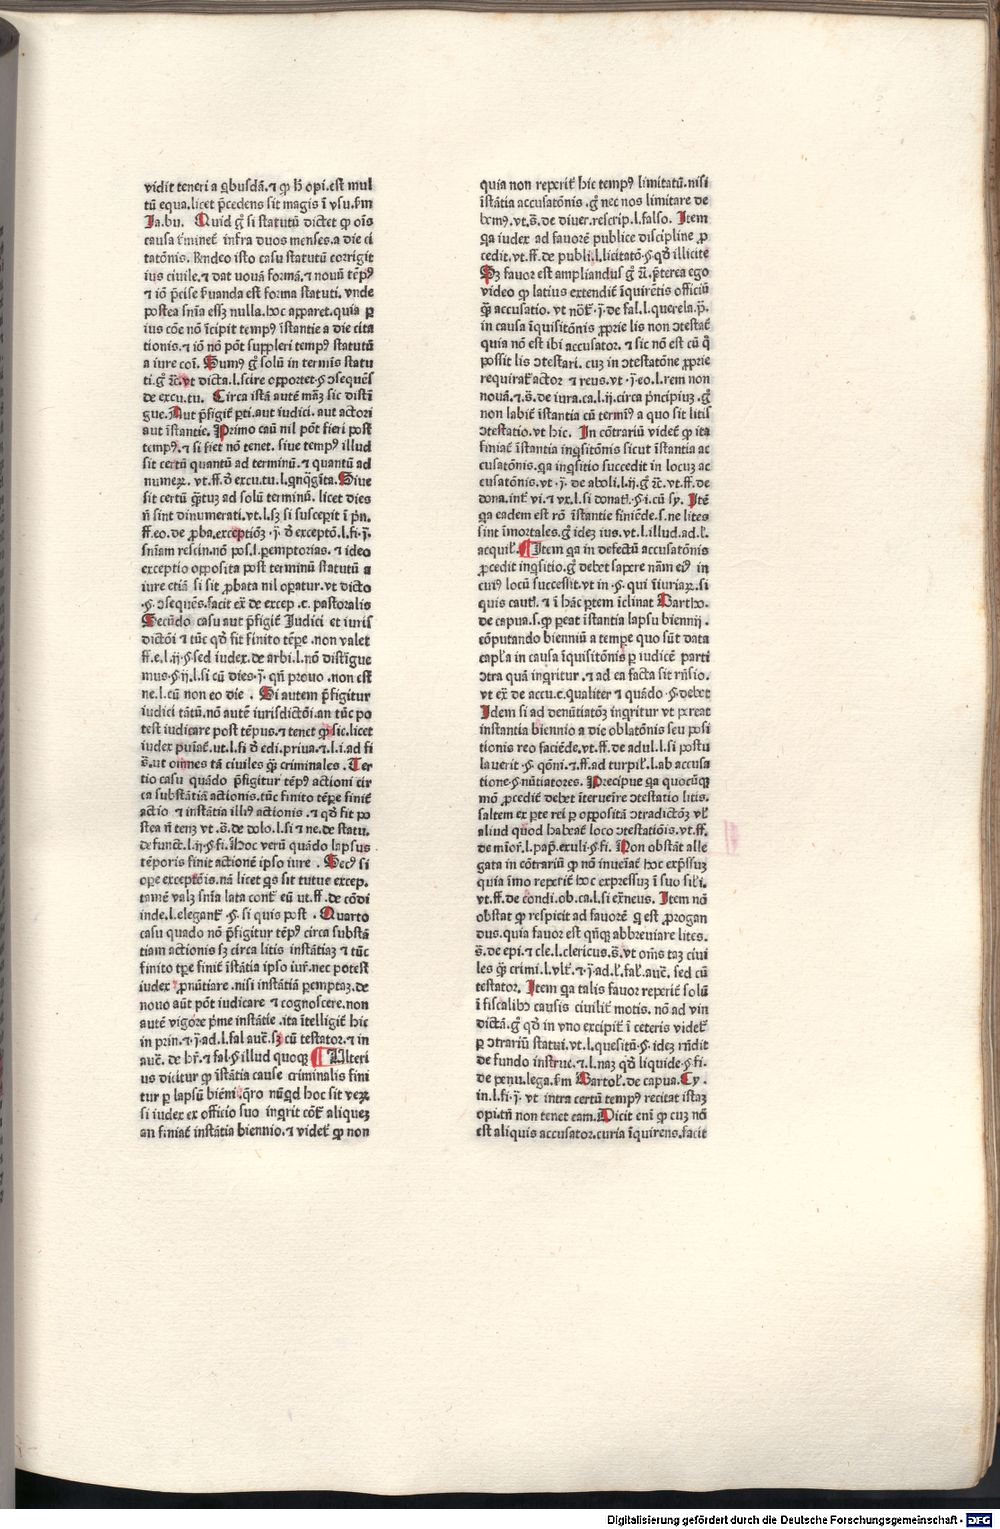 vidit teneri a qbusdā.⁊ ꝙ h̄ opi.est mul
tū equa.licet p̄cedens sit magis ī vsu.s̄m
Ja.bu. Quid gͦ si statutū dictet ꝙ oīs
causa t̄minet̄ infra duos menses.a die ci
tatōnis. Rn̄deo isto casu statutū corrigit
ius civile.⁊ dat nouā formā.⁊ nouū tēpꝰ
⁊ iō p̄cise ẜuanda est forma statuti. vnde
postea snīa essꝫ nulla.hoc apparet.quia ꝑ
ius cōe nō īcipit tempꝰ īstantie a die cita
tionis.⁊ iō nō pōt suppleri tempꝰ statutū
a iure coī. Sumꝰ gͦ solū in termīs statu
ti.gͦ ⁊c̄.vt dicta.l.scire opportet.§ ↄsequēs
de excu.tu. Circa istā autē māꝫ sic distī
gue.Aut p̄figit̄ ꝑti.aut iudici. aut actori
aut īstantie. Primo caū nil pōt fieri post
tempꝰ.⁊ si fiet nō tenet. siue tempꝰ illud
sit certū quantū ad terminū.⁊ quantū ad
numeꝝ. vt.ff.ð excu.tu.l.qnq̄gīta.Siue
sit certū q̄tuꝫ ad solū terminū. licet dies
n̄ sint dinumerati.vt.l.sꝫ si susceperit ī p̄n.
ff.eo.de ꝓba.exceptiōꝫ.ꝟ.ð exceptō.l.fi.ꝟ.
snīam rescin.nō pos.l.peremptorias.⁊ ideo
exceptio opposita post terminū statutū a
iure etiā si sit ꝓbata nil operatur.vt dicto
.§.ↄsequēs.facit ex̄ de excep.c. pastoralis
Secūdo casu aut p̄figit̄ Judici et iuris
dictōi ⁊ tūc qð fit finito tēpe.non valet
ff.e.l.ij.§ sed iudex.de arbi.l.nō distīgue
mus.§ ij.l.si cū dies.ꝟ. qn̄ prouo.non est
ne.l.cū non eo die. Si autem p̄figitur
iudici tātū.nō autē iurisdictōi.an tūc po
test iudicare post tēpus.⁊ tenet ꝙ sic.licet
iudex puīat̄.ut.l.si ð edi.priua.⁊.l.i.ad fi
s̄.ut omnes tā ciuiles q̄ꝫ criminales. Ter
tio casu quādo p̄figitur tēpꝰ actioni cir
ca substātiā actionis.tūc finito tēpe finit̄
actio ⁊ instātia illiꝰ actionis.⁊ qð fit po
stea n̄ tenꝫ vt.s̄.de dolo.l.si ⁊ ne.de statu.
defunct.l.ij.§ fi.Hoc verū quādo lapsus
tēporis finit actionē ipso iure. Secꝰ si
ope exceptōis.nā licet qs sit tutus excep.
tamē valꝫ snīa lata cont̄ eū ut.ff.de cōdi
inde.l.elegant̄.§.si quis post. Quarto
casu quado nō p̄figitur tēpꝰ circa substā
tiam actionis sꝫ circa litis instātiaꝫ ⁊ tūc
finito tp̄e finit̄ īstātia ipso iur̄.nec potest
iudex ꝓnūtiare.nisi instātiā ꝑemptaꝫ.de
nouo aūt pōt iudicare ⁊ cognoscere.non
autē vigore p̄me instātie.ita ītelligit̄ hic
in prin.⁊.ꝟ.ad.l.fal auc̄.sꝫ cū testator.⁊ in
auc̄. de hr̄.⁊ fal.§ illud quoqꝫ ¶ Vlteri
us dicitur ꝙ īstātia cause criminalis fini
tur ꝑ lapsū biēni.qro nūqd hoc sit veꝝ
si iudex ex officio suo inqrit cōt̄ aliqueꝫ
an finiat̄ instātia biennio.⁊ videt̄ ꝙ non
quia non reperit̄ hic tempꝰ limitatū.nisi
īstātia accusatōnis.gͦ nec nos limitare de
bemꝰ.vt.s̄.de diuer.rescrip.l.falso. Item
qa iudex ad fauorē publice discipline ꝓ
cedit.vt.ff.de publi.l.licitatō.§ qð illicite
Sꝫ fauor est ampliandus gͦ ⁊c̄.p̄terea ego
video ꝙ latius extendit̄ īquirētis officiū
q̄ꝫ accusatio. vt nōt̄.ꝟ.de fal.l.querela.ꝟ.
in causa īquisitōnis ꝓprie lis non ↄtestat̄
quia nō est ibi accusator. ⁊ sic nō est cū q̄
possit lis ↄtestari. cuꝫ in ↄtestatōne ꝓprie
requirat̄ actor ⁊ reus.vt.ꝟ.eo.l.rem non
nouā.⁊.s̄.de iura.ca.l.ij.circa p̄ncipiuꝫ.gͦ
non labit̄ īstantia cū termīꝰ a quo sit litis
ↄtestatio.vt hic. In cōtrariū videt̄ ꝙ ita
finiat̄ īstantia inqsitōnis sicut īstantia ac
cusatōnis.qa inqsitio succedit in locuꝫ ac
cusatōnis.vt.ꝟ.de aboli.l.ij.gͦ ⁊c̄.vt.ff.de
dona.int̄ vi.⁊ vx.l.si donat̄.§ i.cū sy. Itē
qa eadem est rō īstantie finiēde.s.ne lites
sint īmortales.gͦ ideꝫ ius.vt.l.illud.ad.l.
acquil.¶ Item qa in defectū accusatōnis
ꝓcedit inqsitio.gͦ debet sapere nām eiꝰ in
cuiꝰ locū successit.vt in.§.qui īiuriaꝝ.si
quis caut̄.⁊ ī hāc ꝑtem īclinat Bartho.
de capua.s.ꝙ ꝑeat īstantia lapsu biennij.
cōputando bienniū a tempe quo sūt data
capl̄a in causa īquisitōnis ꝑ iudicē parti
ↄtra quā inqritur.⁊ ad ea facta sit rn̄sio.
vt ex̄ de accu.c.qualiter ⁊ quādo.§ debet
Idem si ad denūtiatōꝫ inqritur vt ꝑeat
instantia biennio a die oblatōnis seu posi
tionis reo faciēde.vt.ff.de adul.l.si postu
lauerit.§ qōni.⁊.ff.ad turpil.l.ab accusa
tione.§ nūtiatores. Precipue qa quocūqꝫ
mō ꝓcedit̄ debet īteruēire ↄtestatio litis.
saltem ex ꝑte rei ꝑ oppositā ↄtradictōꝫ vl̄
aliud quod habeat̄ loco ↄtestatiōis.vt.ff.
de mīor̄.l.pap̄.exuli.§ fi. Non obstāt alle
gata in cōtrariū ꝙ nō inueīat̄ hoc exp̄ssuꝫ
quia īmo reperit̄ hoc expressuꝫ ī suo sil̄i.
vt.ff.de condi.ob.ca.l.si exneus. Item nō
obstat ꝙ respicit ad fauorē q est ꝓrogan
dus.quia fauor est qn̄qꝫ abbreviare lites.
s̄.de epi.⁊ cle.l.clericus.s̄.vt om̄s taꝫ ciui
les q̄ꝫ crimi.l.vlt̄.⁊.ꝟ.ad.l.fal.auc̄. sed cū
testator. Item qa talis fauor reperit̄ solū
ī fiscalibꝰ causis ciuilit̄ motis. nō ad vin
dictā.gͦ qð in vno excipit̄ ī ceteris videt̄
ꝑ ↄtrariū statui.vt.l.quesitū.§.ideꝫ rn̄dit
de fundo instruc.⁊.l.naꝫ qð liquide.§ fi.
de penu.lega.s̄m Bartol̄.de capua.Cy.
in.l.fi.ꝟ. vt intra certū tempꝰ recitat istaꝫ
opi.tn̄ non tenet eam.Dicit enī ꝙ cuꝫ nō
est aliquis accusator.curia īquirens.facit
Digitalisierung gefördert durch die Deutsche Forschungsgemeinschaft - DFG